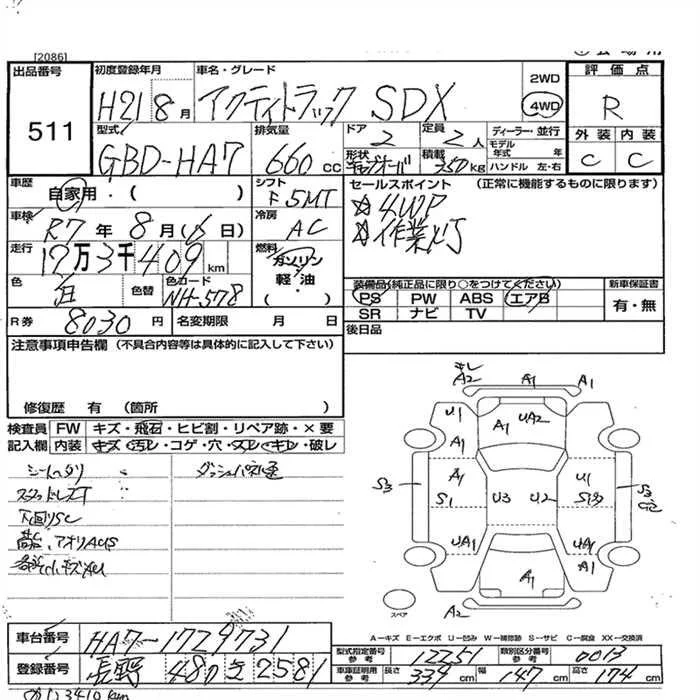 [2086]
出品番号
511
初度登録年月
H21 8月
車名・グレード
アクティトラック SDX
2WD
4WD
評価点
R
外装 内装
C C
型式
GBD-HA7
排気量
660 cc
ドア
2
定員
2人
形状
積載
350 kg
ディーラー・並行
モデル
年式 年
ハンドル 左・右
車歴
自家用・( )
シフト
F 5MT
セールスポイント (正常に機能するものに限ります)
☆4WD
☆作業灯
車検
R7年 8月( 日)
冷房
AC
走行
12万3千409 km
燃料
ガソリン
軽油
( ・ )
色
白
色替
色コード
NH-578
装備品(純正品に限り○をつけてください)
PS PW ABS エアB
SR ナビ TV
新車保証書
有・無
R券
8030円
名変期限 月 日
後日品
注意事項申告欄(不具合内容等は具体的に記入して下さい)
修復歴 有(箇所 )
検査員
記入欄
FW キズ・飛石・ヒビ割・リペア跡・×要
内装 キズ・汚レ・コゲ・穴・スレ・キレ・破レ
下回りSC
アオリAUS
A2 A1 A1
U1 A1 UA2
A1
S3 A1 U1 S3
S1 U3 U2
UA1 UA1
A1 A1
スペア
A2
A－キズ E－エクボ U－凹み W－補修跡 S－サビ C－腐食 XX－交換済
車台番号
HA7-1729731
型式指定番号
参考
12251
類別区分番号
参考
0013
登録番号
長野 480 き 2581
車庫証明用
参考
長さ
339 cm
幅
147 cm
高さ
174 cm